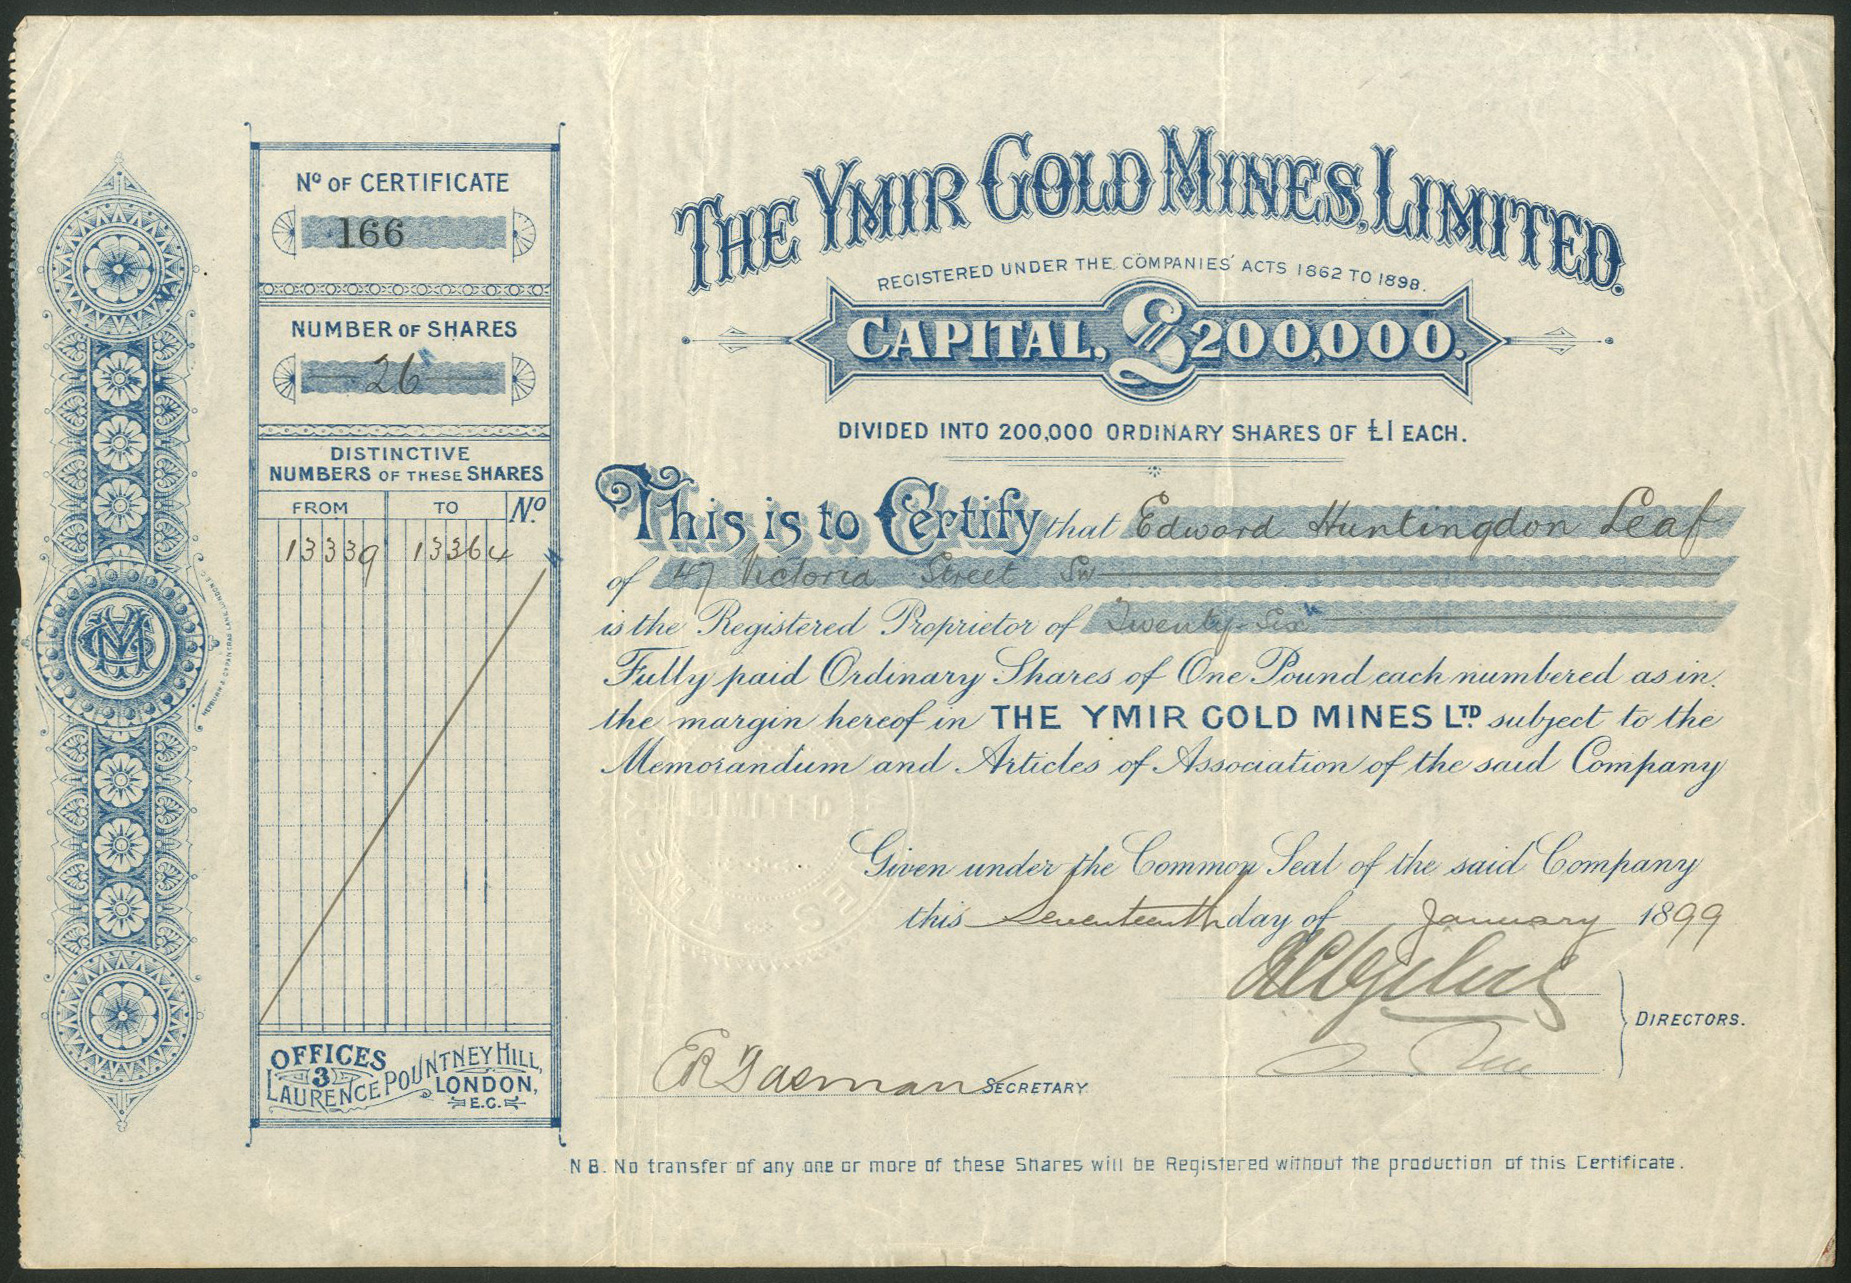 Nº OF CERTIFICATE
166
NUMBER OF SHARES
26
DISTINCTIVE
NUMBERS OF THESE SHARES
FROM TO Nº
13339 13364
OFFICES
3
LAURENCE POUNTNEY HILL,
LONDON,
E.C.
THE YMIR GOLD MINES, LIMITED.
REGISTERED UNDER THE COMPANIES' ACTS 1862 TO 1898.
CAPITAL, £200,000.
DIVIDED INTO 200,000 ORDINARY SHARES OF £1 EACH.
This is to Certify that Edward Huntingdon Leaf
of 47 Victoria Street SW
is the Registered Proprietor of Twenty-Six
Fully paid Ordinary Shares of One Pound each numbered as in
the margin hereof in THE YMIR GOLD MINES LTD subject to the
Memorandum and Articles of Association of the said Company
Given under the Common Seal of the said Company
this Seventeenth day of January 1899
DIRECTORS.
SECRETARY
N B. No transfer of any one or more of these Shares will be Registered without the production of this Certificate.